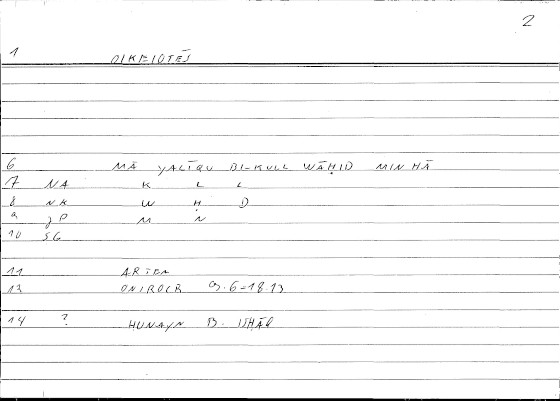 2
1 OIKEIOTĒS
6 MĀ YALĪQU BI-KULL WĀḤID MINHĀ
7 NA K L L
8 NK W Ḥ D
9 JP M N
10 SG
11 ARTEM
13 ONIROCR 9.6=18.13
14 ? HUNAYN B. ISHĀQ